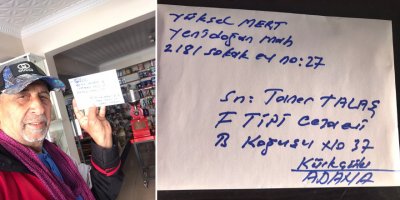 Yüksel MERT
yenidoğan mah
2181 sokak ev no:27
Sn: Taner TALAŞ
F TİPİ Cezaevi
B Koğuşu NO 37
Kürkçüler
ADANA